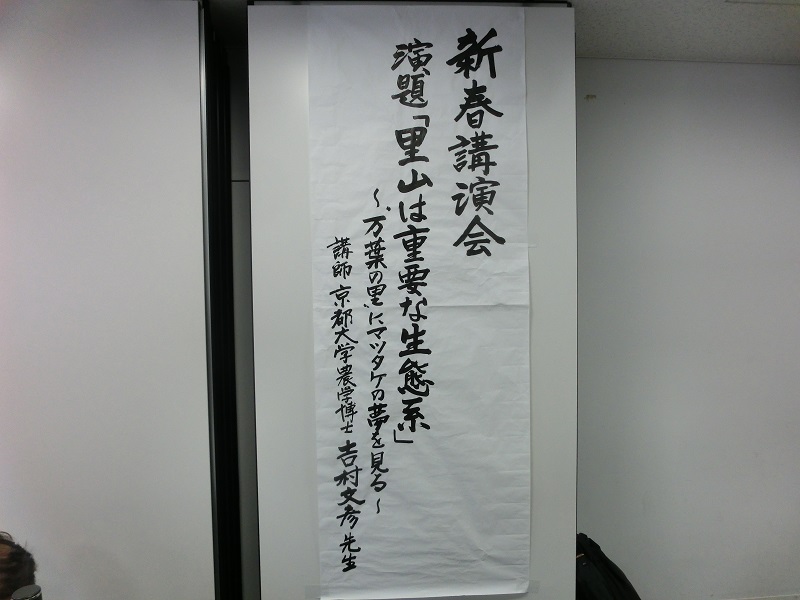 新春講演会
演題「里山は重要な生態系」
～“万葉の里”にマツタケの夢を見る～
講師 京都大学農学博士 吉村文彦先生